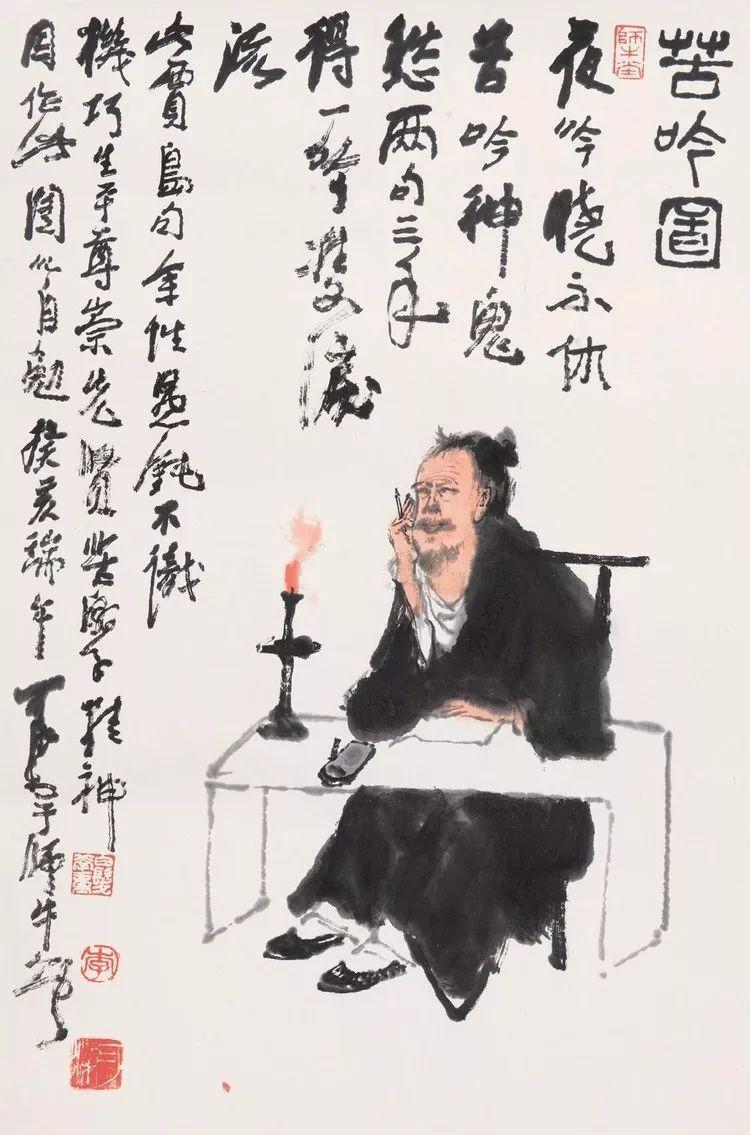 苦吟圖
夜吟曉不休
苦吟神鬼
愁兩句三年
得一吟雙淚
流
此賈島句余性愚鈍不識
機巧生平尊崇先賢苦學精神
因作此圖以自勉癸亥豬年可染于師牛堂
師牛堂
白髮學童
李
可染